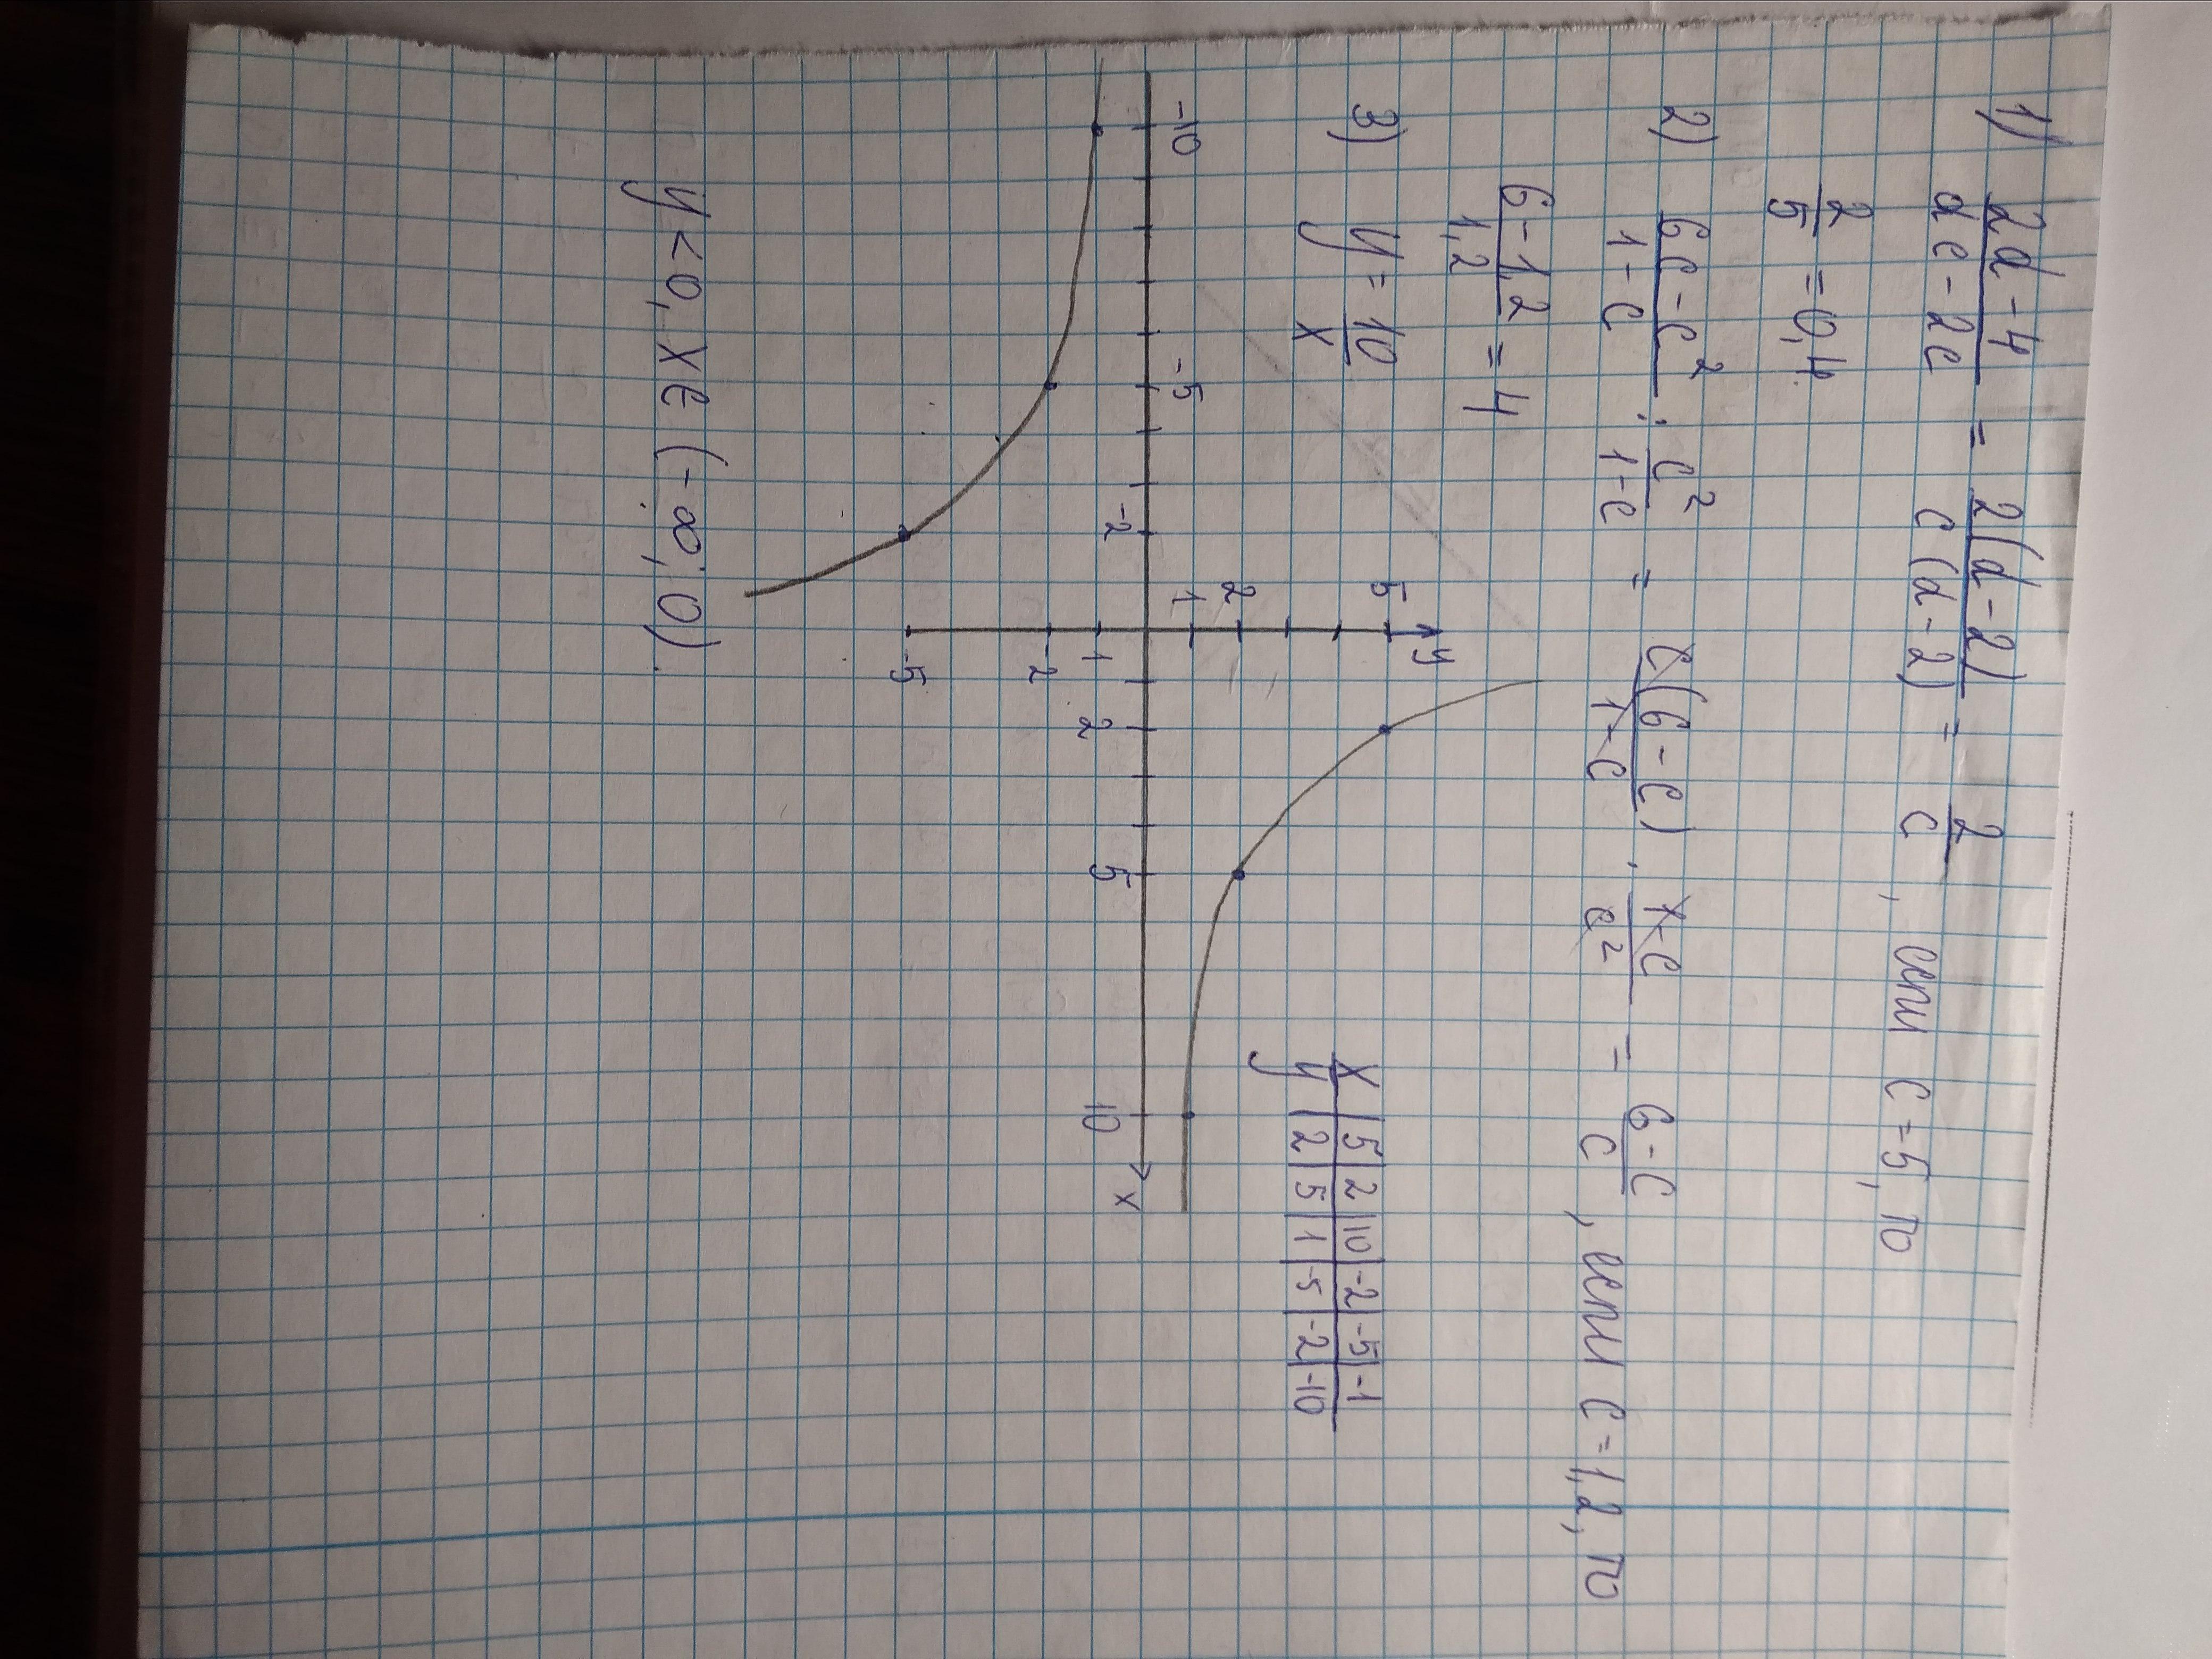 1) (2d-4)/(dc-2c) = 2(d-2)/(c(d-2)) = 2/c, если c=5, то
2/5 = 0,4.
2) (6c-c²)/(1-c) : c²/(1-c) = c(6-c)/(1-c) · (1-c)/c² = (6-c)/c, если c=1,2, то
(6-1,2)/1,2 = 4
3) y = 10/x
x | 5 | 2 | 10 | -2 | -5 | -1
y | 2 | 5 | 1 | -5 | -2 | -10
y
5
2
1
-10 -5 -2 2 5 10 x
1
-2
-5
y<0, x∈(-∞; 0).